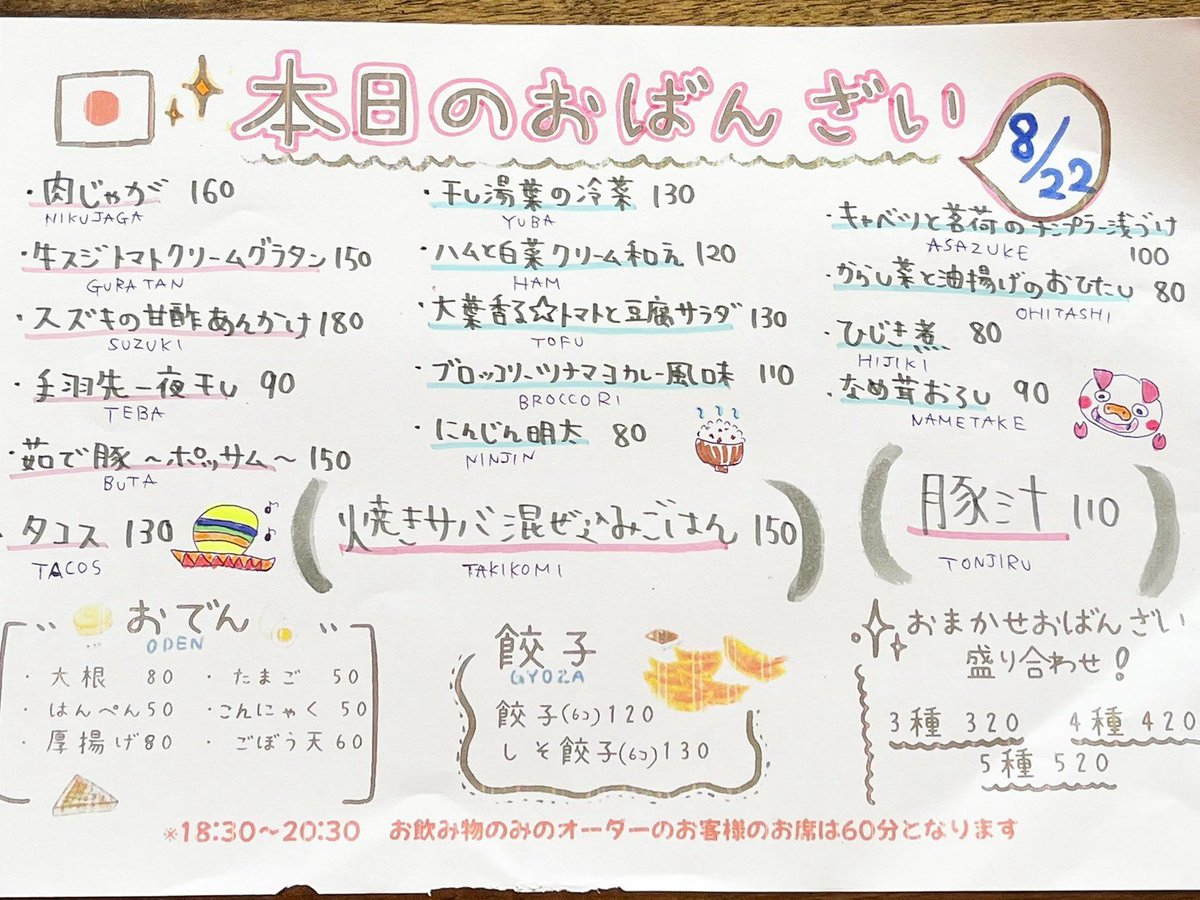 本日のおばんざい
8/22
・肉じゃが 160
NIKUJAGA
・牛スジトマトクリームグラタン 150
GURATAN
・スズキの甘酢あんかけ 180
SUZUKI
・手羽先一夜干し 90
TEBA
・茹で豚～ポッサム～ 150
BUTA
・タコス 130
TACOS
・干し湯葉の冷菜 130
YUBA
・ハムと白菜クリーム和え 120
HAM
・大葉香る☆トマトと豆腐サラダ 130
TOFU
・ブロッコリーツナマヨカレー風味 110
BROCCORI
・にんじん明太 80
NINJIN
・キャベツと茗荷のナンプラー浅づけ
ASAZUKE 100
・からし菜と油揚げのおひたし 80
OHITASHI
・ひじき煮 80
HIJIKI
・なめ茸おろし 90
NAMETAKE
(焼きサバ混ぜ込みごはん 150)
TAKIKOMI
(豚汁 110)
TONJIRU
おでん
ODEN
・大根 80 ・たまご 50
・はんぺん50 ・こんにゃく 50
・厚揚げ80 ・ごぼう天60
餃子
GYOZA
餃子(6コ)120
しそ餃子(6コ)130
おまかせおばんざい
盛り合わせ!
3種 320 4種 420
5種 520
※18:30～20:30 お飲み物のみのオーダーのお客様のお席は60分となります